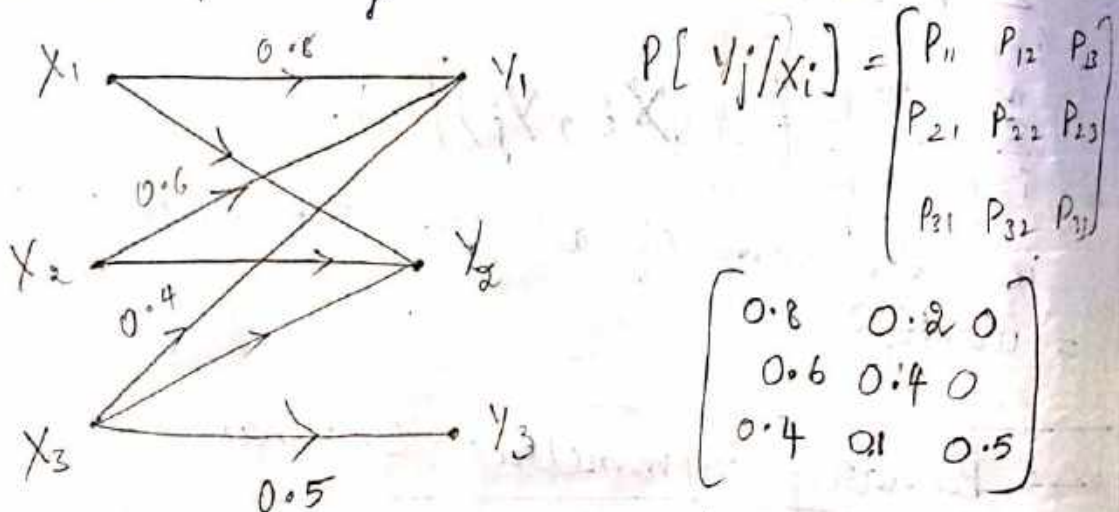 X1 0.8 Y1
0.6
X2 Y2
0.4
X3 Y3
0.5
P[Yj/Xi] = [P11 P12 P13
P21 P22 P23
P31 P32 P33]
[0.8 0.2 0
0.6 0.4 0
0.4 0.1 0.5]